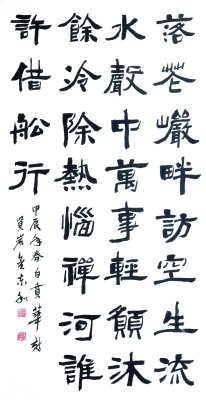 落花巖畔訪空生流
水聲中萬事輕願沐
餘冷除熱惱禪河誰
許借舩行
甲辰年春白賁華詩
金東